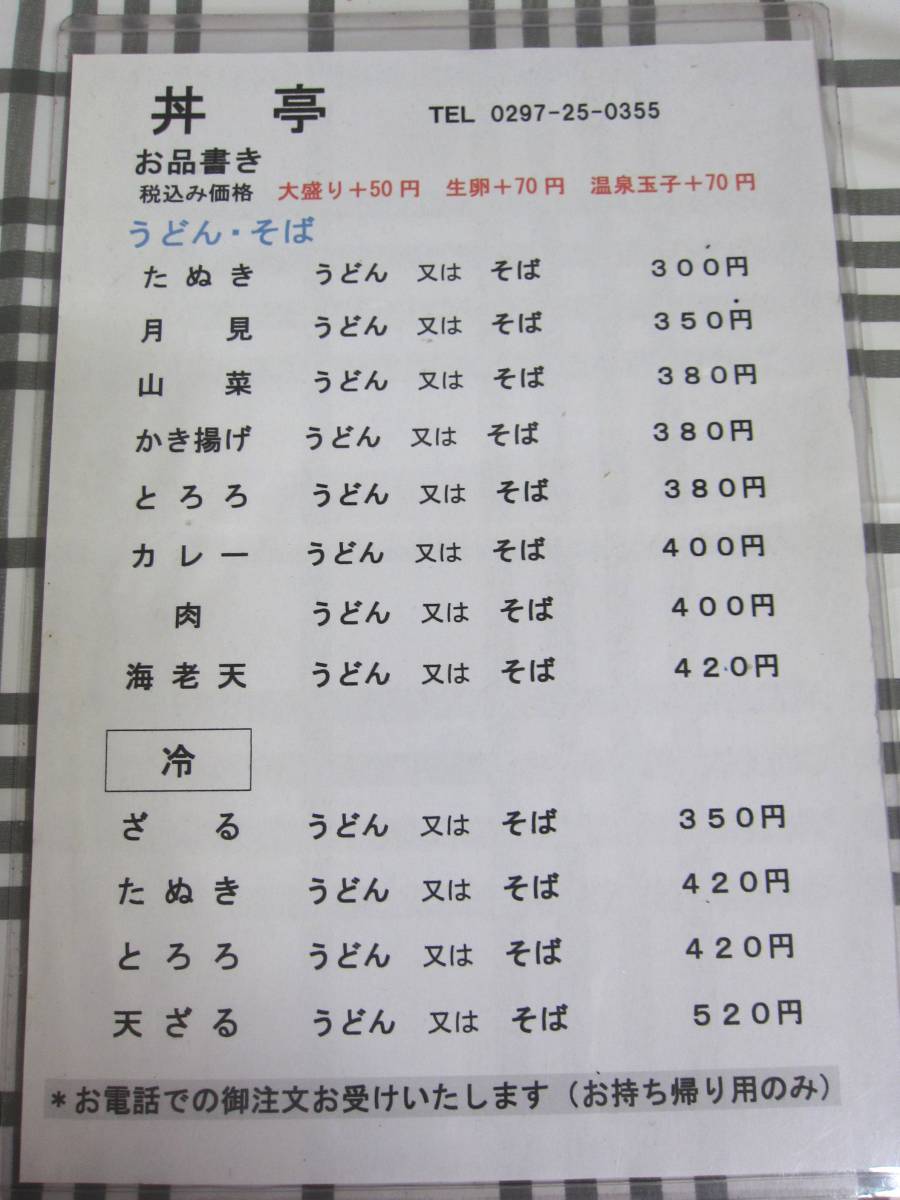 丼 亭 TEL 0297-25-0355
お品書き
税込み価格 大盛り＋50円 生卵＋70円 温泉玉子＋70円
うどん・そば
たぬき うどん 又は そば ３００円
月見 うどん 又は そば ３５０円
山菜 うどん 又は そば ３８０円
かき揚げ うどん 又は そば ３８０円
とろろ うどん 又は そば ３８０円
カレー うどん 又は そば ４００円
肉 うどん 又は そば ４００円
海老天 うどん 又は そば ４２０円
冷
ざる うどん 又は そば ３５０円
たぬき うどん 又は そば ４２０円
とろろ うどん 又は そば ４２０円
天ざる うどん 又は そば ５２０円
＊お電話での御注文お受けいたします（お持ち帰り用のみ）